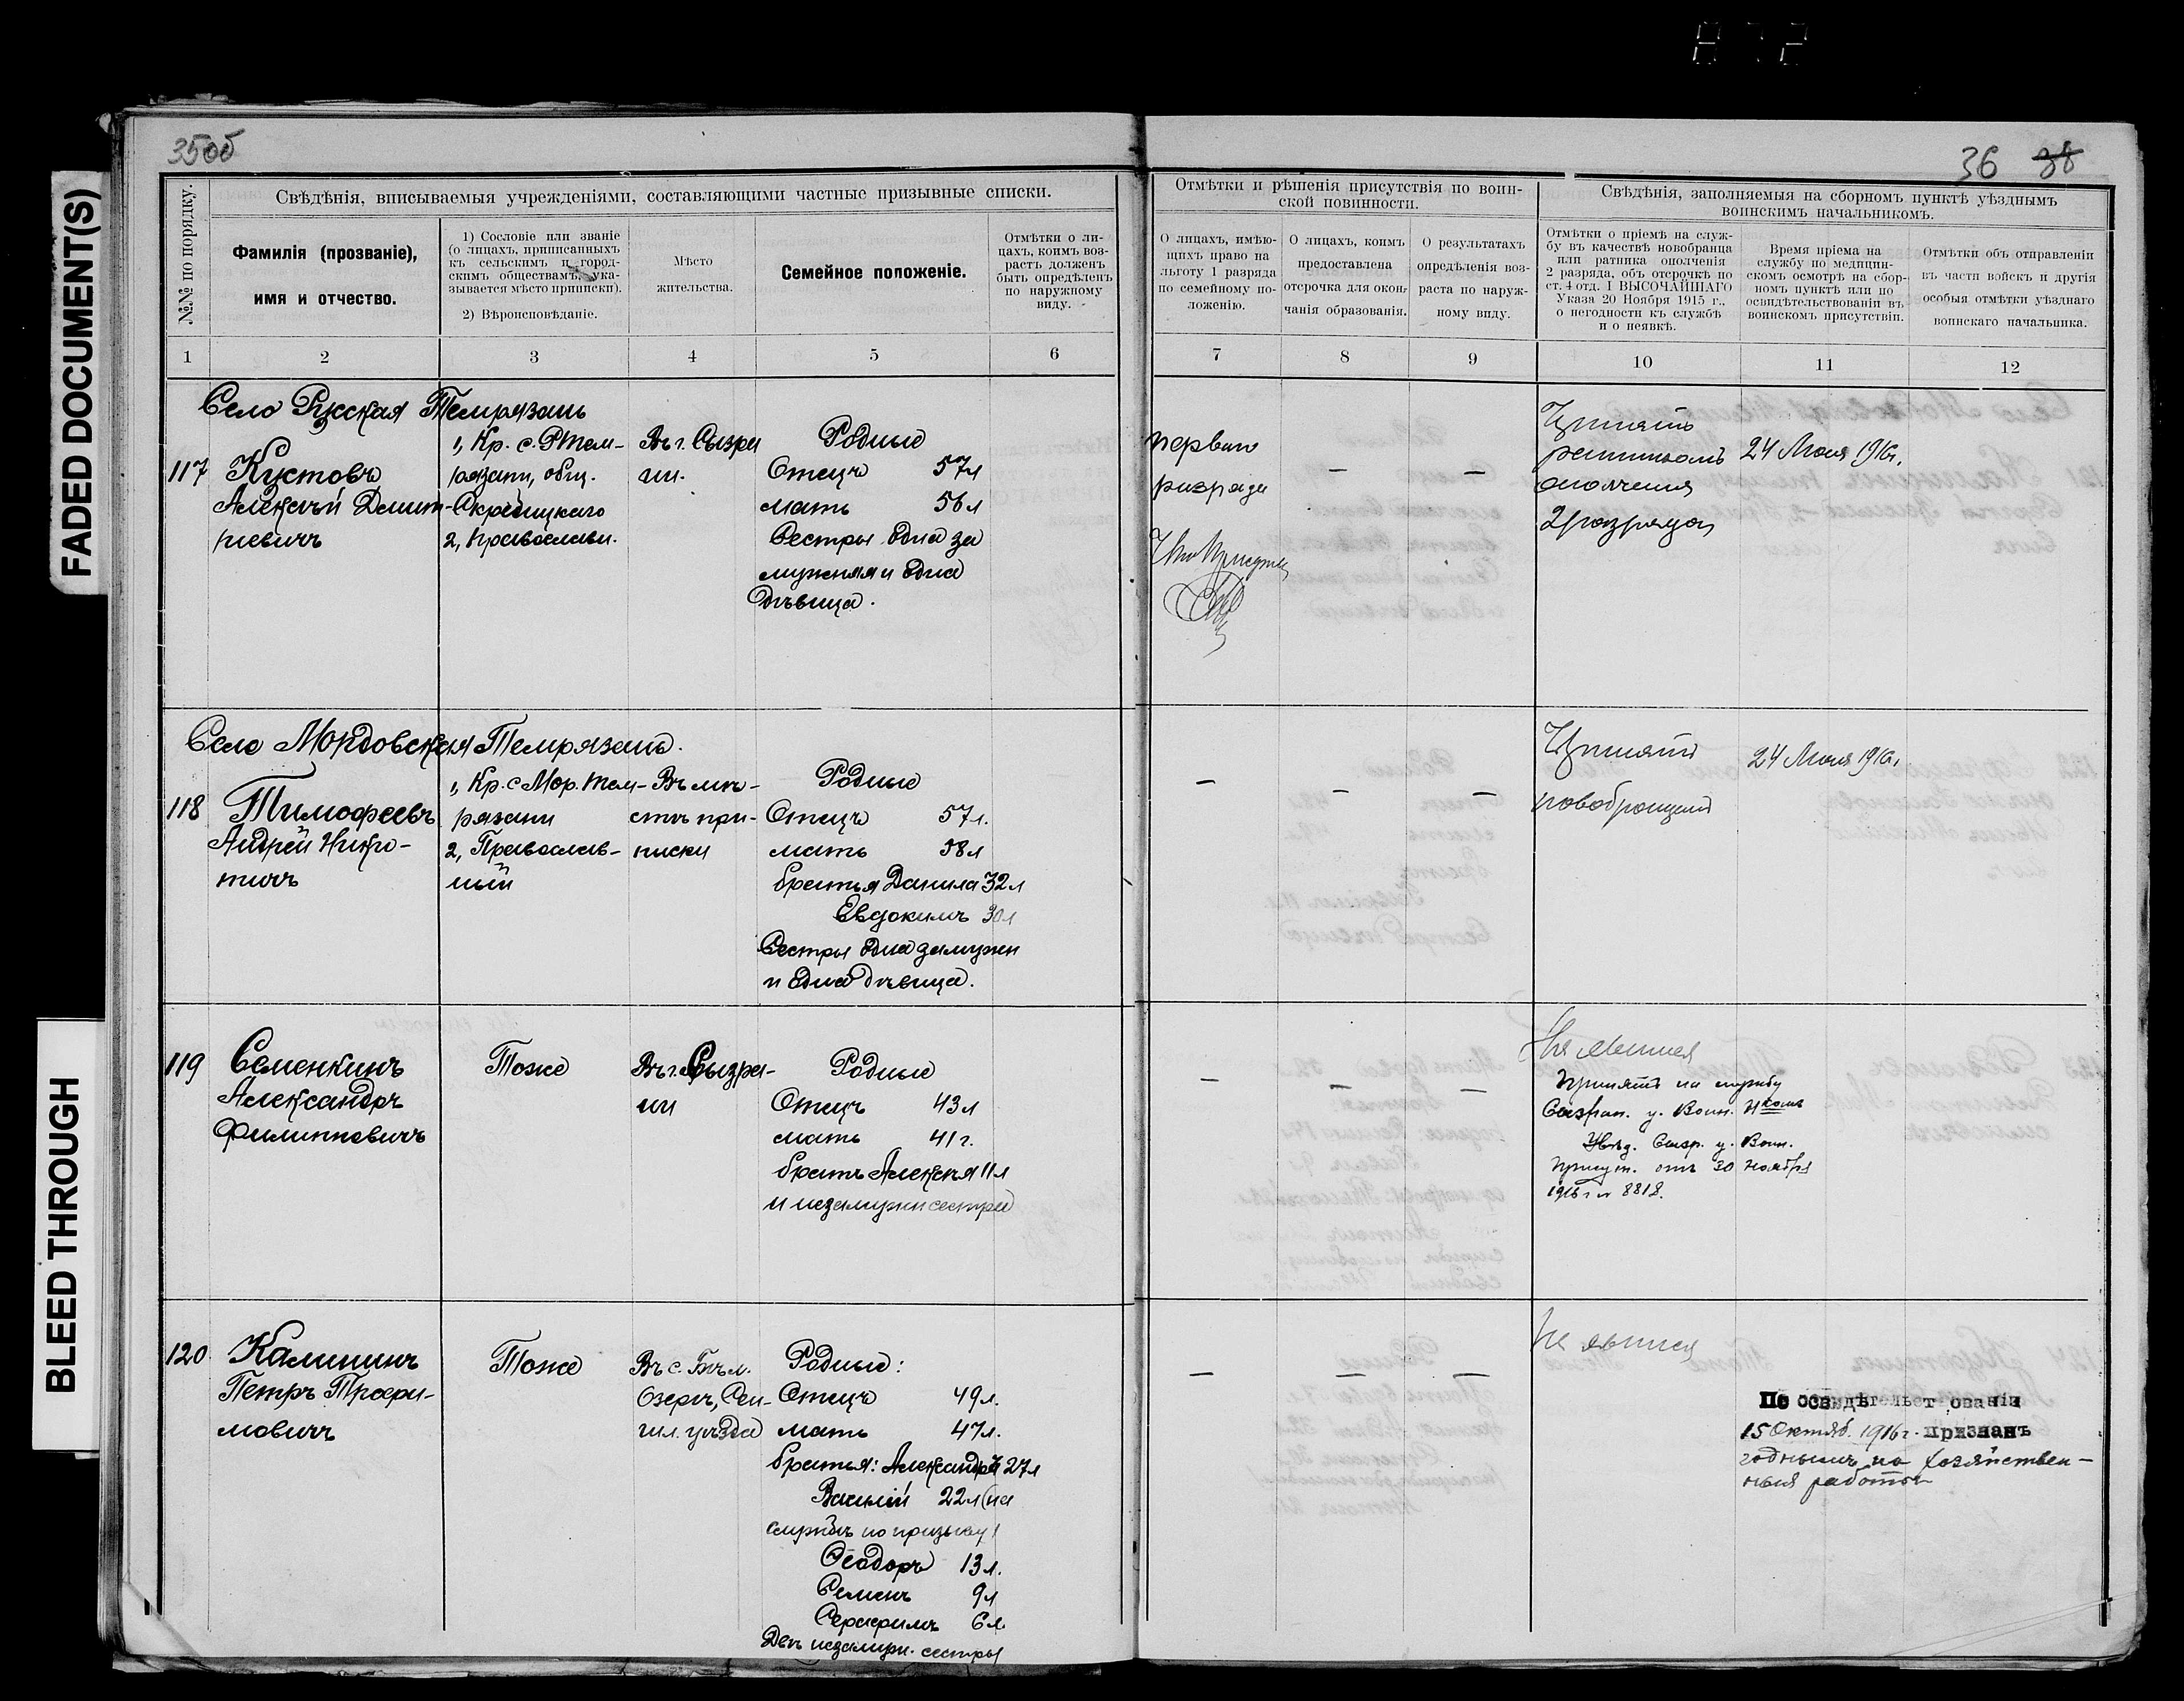 FADED DOCUMENT(S)
BLEED THROUGH
35об
36 38
№№ по порядку.
Свѣдѣнія, вписываемыя учрежденіями, составляющими частные призывные списки.
Фамилія (прозваніе),
имя и отчество.
1) Сословіе или званіе
(о лицахъ, приписанныхъ
къ сельскимъ и город-
скимъ обществамъ, ука-
зывается мѣсто приписки).
2) Вѣроисповѣданіе.
Мѣсто
жительства.
Семейное положеніе.
Отмѣтки о ли-
цахъ, коимъ воз-
растъ долженъ
быть опредѣленъ
по наружному
виду.
Отмѣтки и рѣшенія присутствія по воин-
ской повинности.
О лицахъ, имѣю-
щихъ право на
льготу 1 разряда
по семейному по-
ложенію.
О лицахъ, коимъ
предоставлена
отсрочка для окон-
чанія образованія.
О результатахъ
опредѣленія воз-
раста по наруж-
ному виду.
Свѣдѣнія, заполняемыя на сборномъ пунктѣ уѣзднымъ
воинскимъ начальникомъ.
Отмѣтки о пріемѣ на служ-
бу въ качествѣ новобранца
или ратника ополченія
2 разряда, объ отсрочкѣ по
ст. 4 отд. I ВЫСОЧАЙШАГО
Указа 20 Ноября 1915 г.,
о негодности къ службѣ
и о неявкѣ.
Время пріема на
службу по медицин-
скомъ осмотрѣ на сбор-
номъ пунктѣ или по
освидѣтельствованіи въ
воинскомъ присутствіи.
Отмѣтки объ отправленіи
въ части войскъ и другія
особыя отмѣтки уѣзднаго
воинскаго начальника.
1 2 3 4 5 6 7 8 9 10 11 12
Село Русская Темрязань
117
Кустовъ
Алексѣй Дмит-
ріевичъ
1, Кр. с. Р Тем-
рязани, общ.
Скребицкаго
2, Православн.
Въ г. Сызра
ни.
Родные
Отецъ 57л
мать 56л
Сестры одна за
мужняя и одна
дѣвица.
перваго
разряда
—
—
Принятъ
ратникомъ
ополченія
2 разряда
24 Мая 1916г.
Село Мордовская Темрязань.
118
Тимофеевъ
Андрей Ники-
тичъ
1, Кр. с Мор. Тем-
рязани
2, Православ-
ный
Въ мѣ-
стѣ при-
писки
Родные
Отецъ 57л.
мать 58л
братья Данила 32л
Евдокимъ 30л
Сестры одна замужн
и одна дѣвица.
—
—
—
Принятъ
новобранцемъ
24 Мая 1916г.
119
Семенкинъ
Александръ
Филипповичъ
Тоже
Въ г. Сызра-
ни
Родные
Отецъ 43л
мать 41г.
братъ Алексѣя 11л
и незамужн сестра
—
—
—
Не явился
Принятъ на службу
Сызран. у. Воин. Н комъ
Увѣд. Сызр. у. Воин.
Присут. отъ 30 ноября
1916 г № 8818.
120
Калининъ
Петръ Трофи-
мовичъ
Тоже
Въ с. Бѣл.
Озерѣ, Сен-
гил. уѣзда
Родные:
Отецъ 49л.
мать 47л.
братья: Александръ 27л
Василій 22л (на
службѣ по призыву)
Ѳеодоръ 13л.
Семенъ 9л
Серафимъ 6л
Двѣ незамужн. сестры
—
—
—
Не явился
По освидѣтельствованіи
15 Октяб. 1916г. признанъ
годнымъ на хозяйствен-
ныя работы